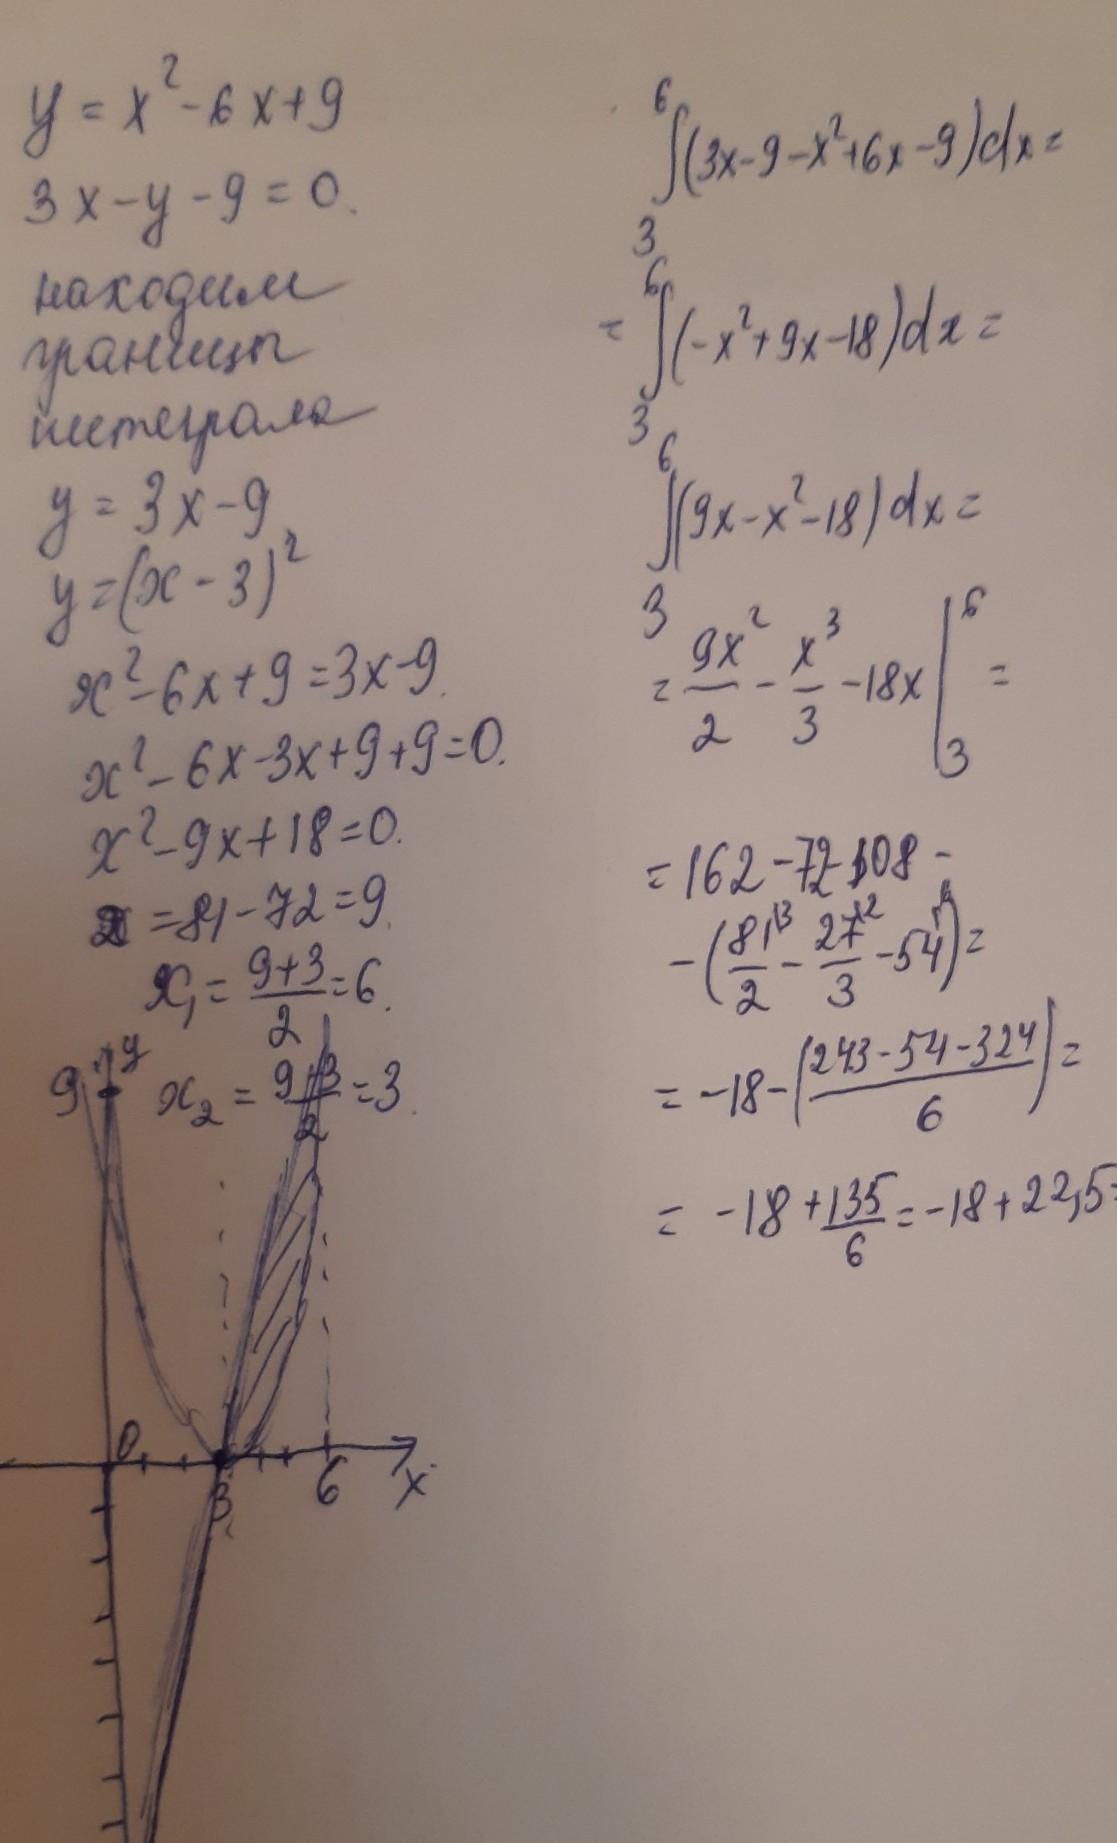 y = x² - 6x + 9
3x - y - 9 = 0.
находим
границы
интеграла
y = 3x - 9
y = (x - 3)²
x² - 6x + 9 = 3x - 9.
x² - 6x - 3x + 9 + 9 = 0.
x² - 9x + 18 = 0.
D = 81 - 72 = 9.
x₁ = (9+3)/2 = 6.
x₂ = (9-3)/2 = 3.
9 y
0 3 6 x
∫₃⁶ (3x - 9 - x² + 6x - 9) dx =
= ∫₃⁶ (-x² + 9x - 18) dx =
∫₃⁶ (9x - x² - 18) dx =
= 9x²/2 - x³/3 - 18x |₃⁶ =
= 162 - 72 - 108 -
- (81/2 ^3 - 27/3 ^2 - 54 ^6) =
= -18 - ((243 - 54 - 324)/6) =
= -18 + 135/6 = -18 + 22,5 =